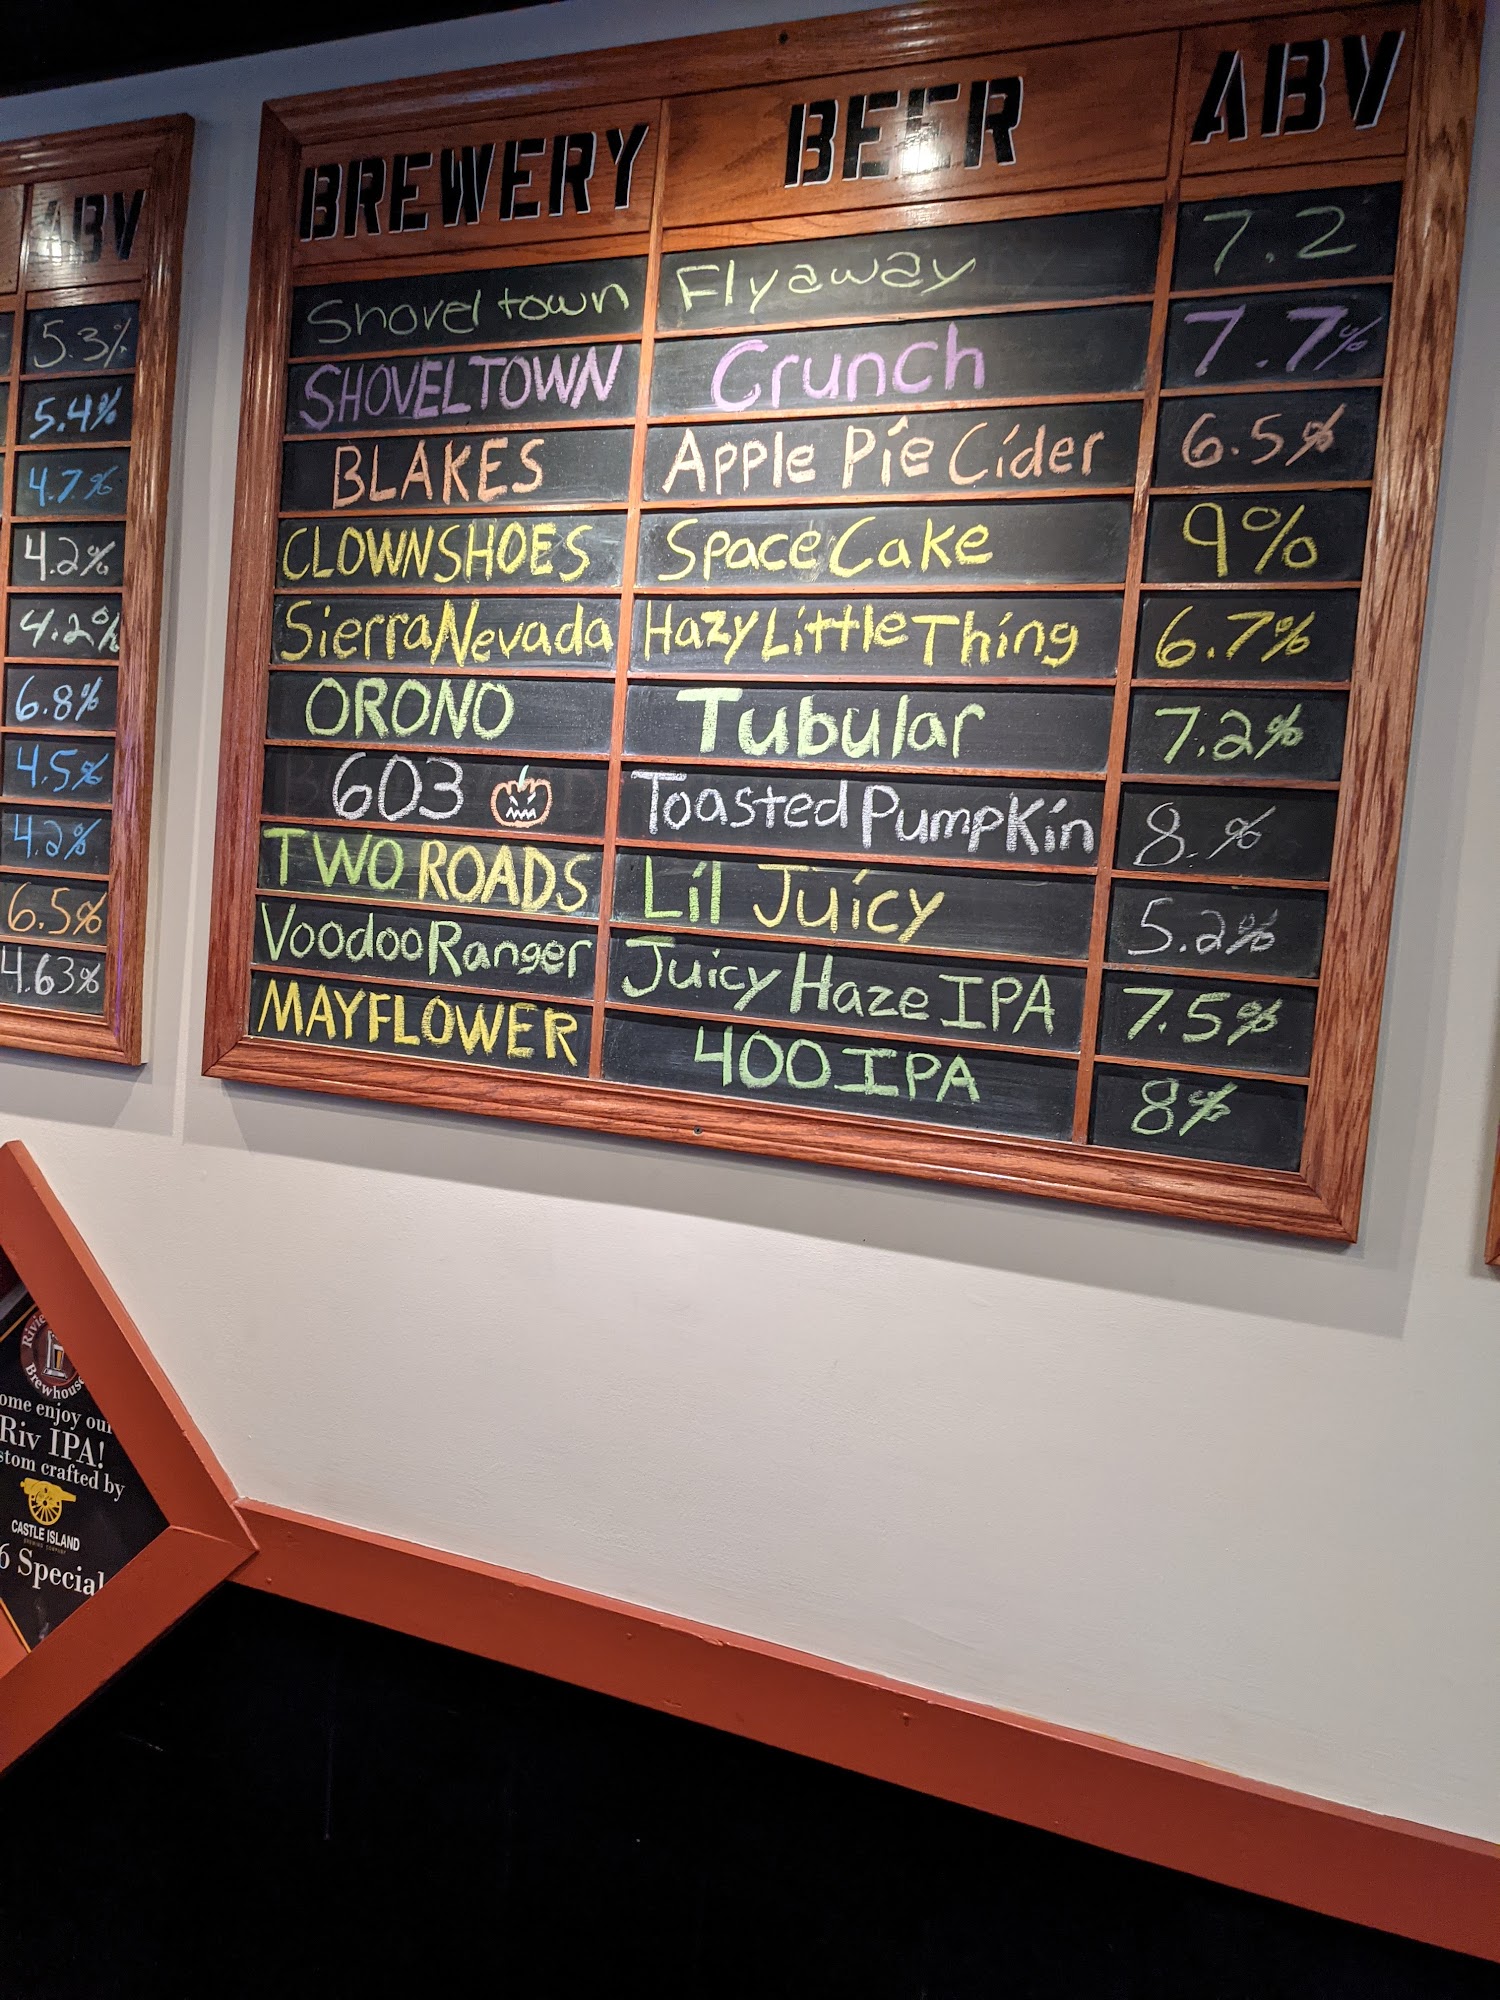 ABV
5.3%
5.4%
4.7%
4.2%
4.2%
6.8%
4.5%
4.2%
6.5%
4.63%
BREWERY BEER ABV
Shovel town Flyaway 7.2
SHOVELTOWN Crunch 7.7%
BLAKES Apple Pie Cider 6.5%
CLOWNSHOES Space Cake 9%
Sierra Nevada Hazy Little Thing 6.7%
ORONO Tubular 7.2%
603 Toasted Pumpkin 8.%
TWO ROADS Lil Juicy 5.2%
Voodoo Ranger Juicy Haze IPA 7.5%
MAYFLOWER 400 IPA 8%
Brewhouse
ome enjoy our
Riv IPA!
stom crafted by
CASTLE ISLAND
BREWING COMPANY
6 Special